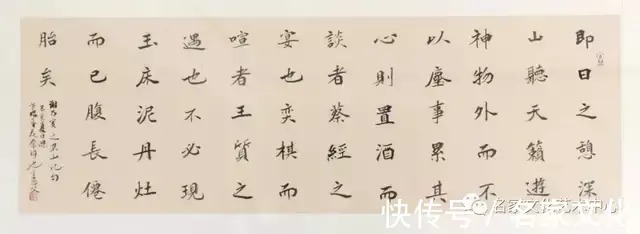 即日之憩深
山聽天籟遊
神物外而不
以塵事累其
心則置酒而
談者蔡經之
宴也奕棋而
喧者王質之
遇也不必現
玉床泥丹灶
而已腹長僊
胎矣
名家文化艺术中心
快传号/名家文化